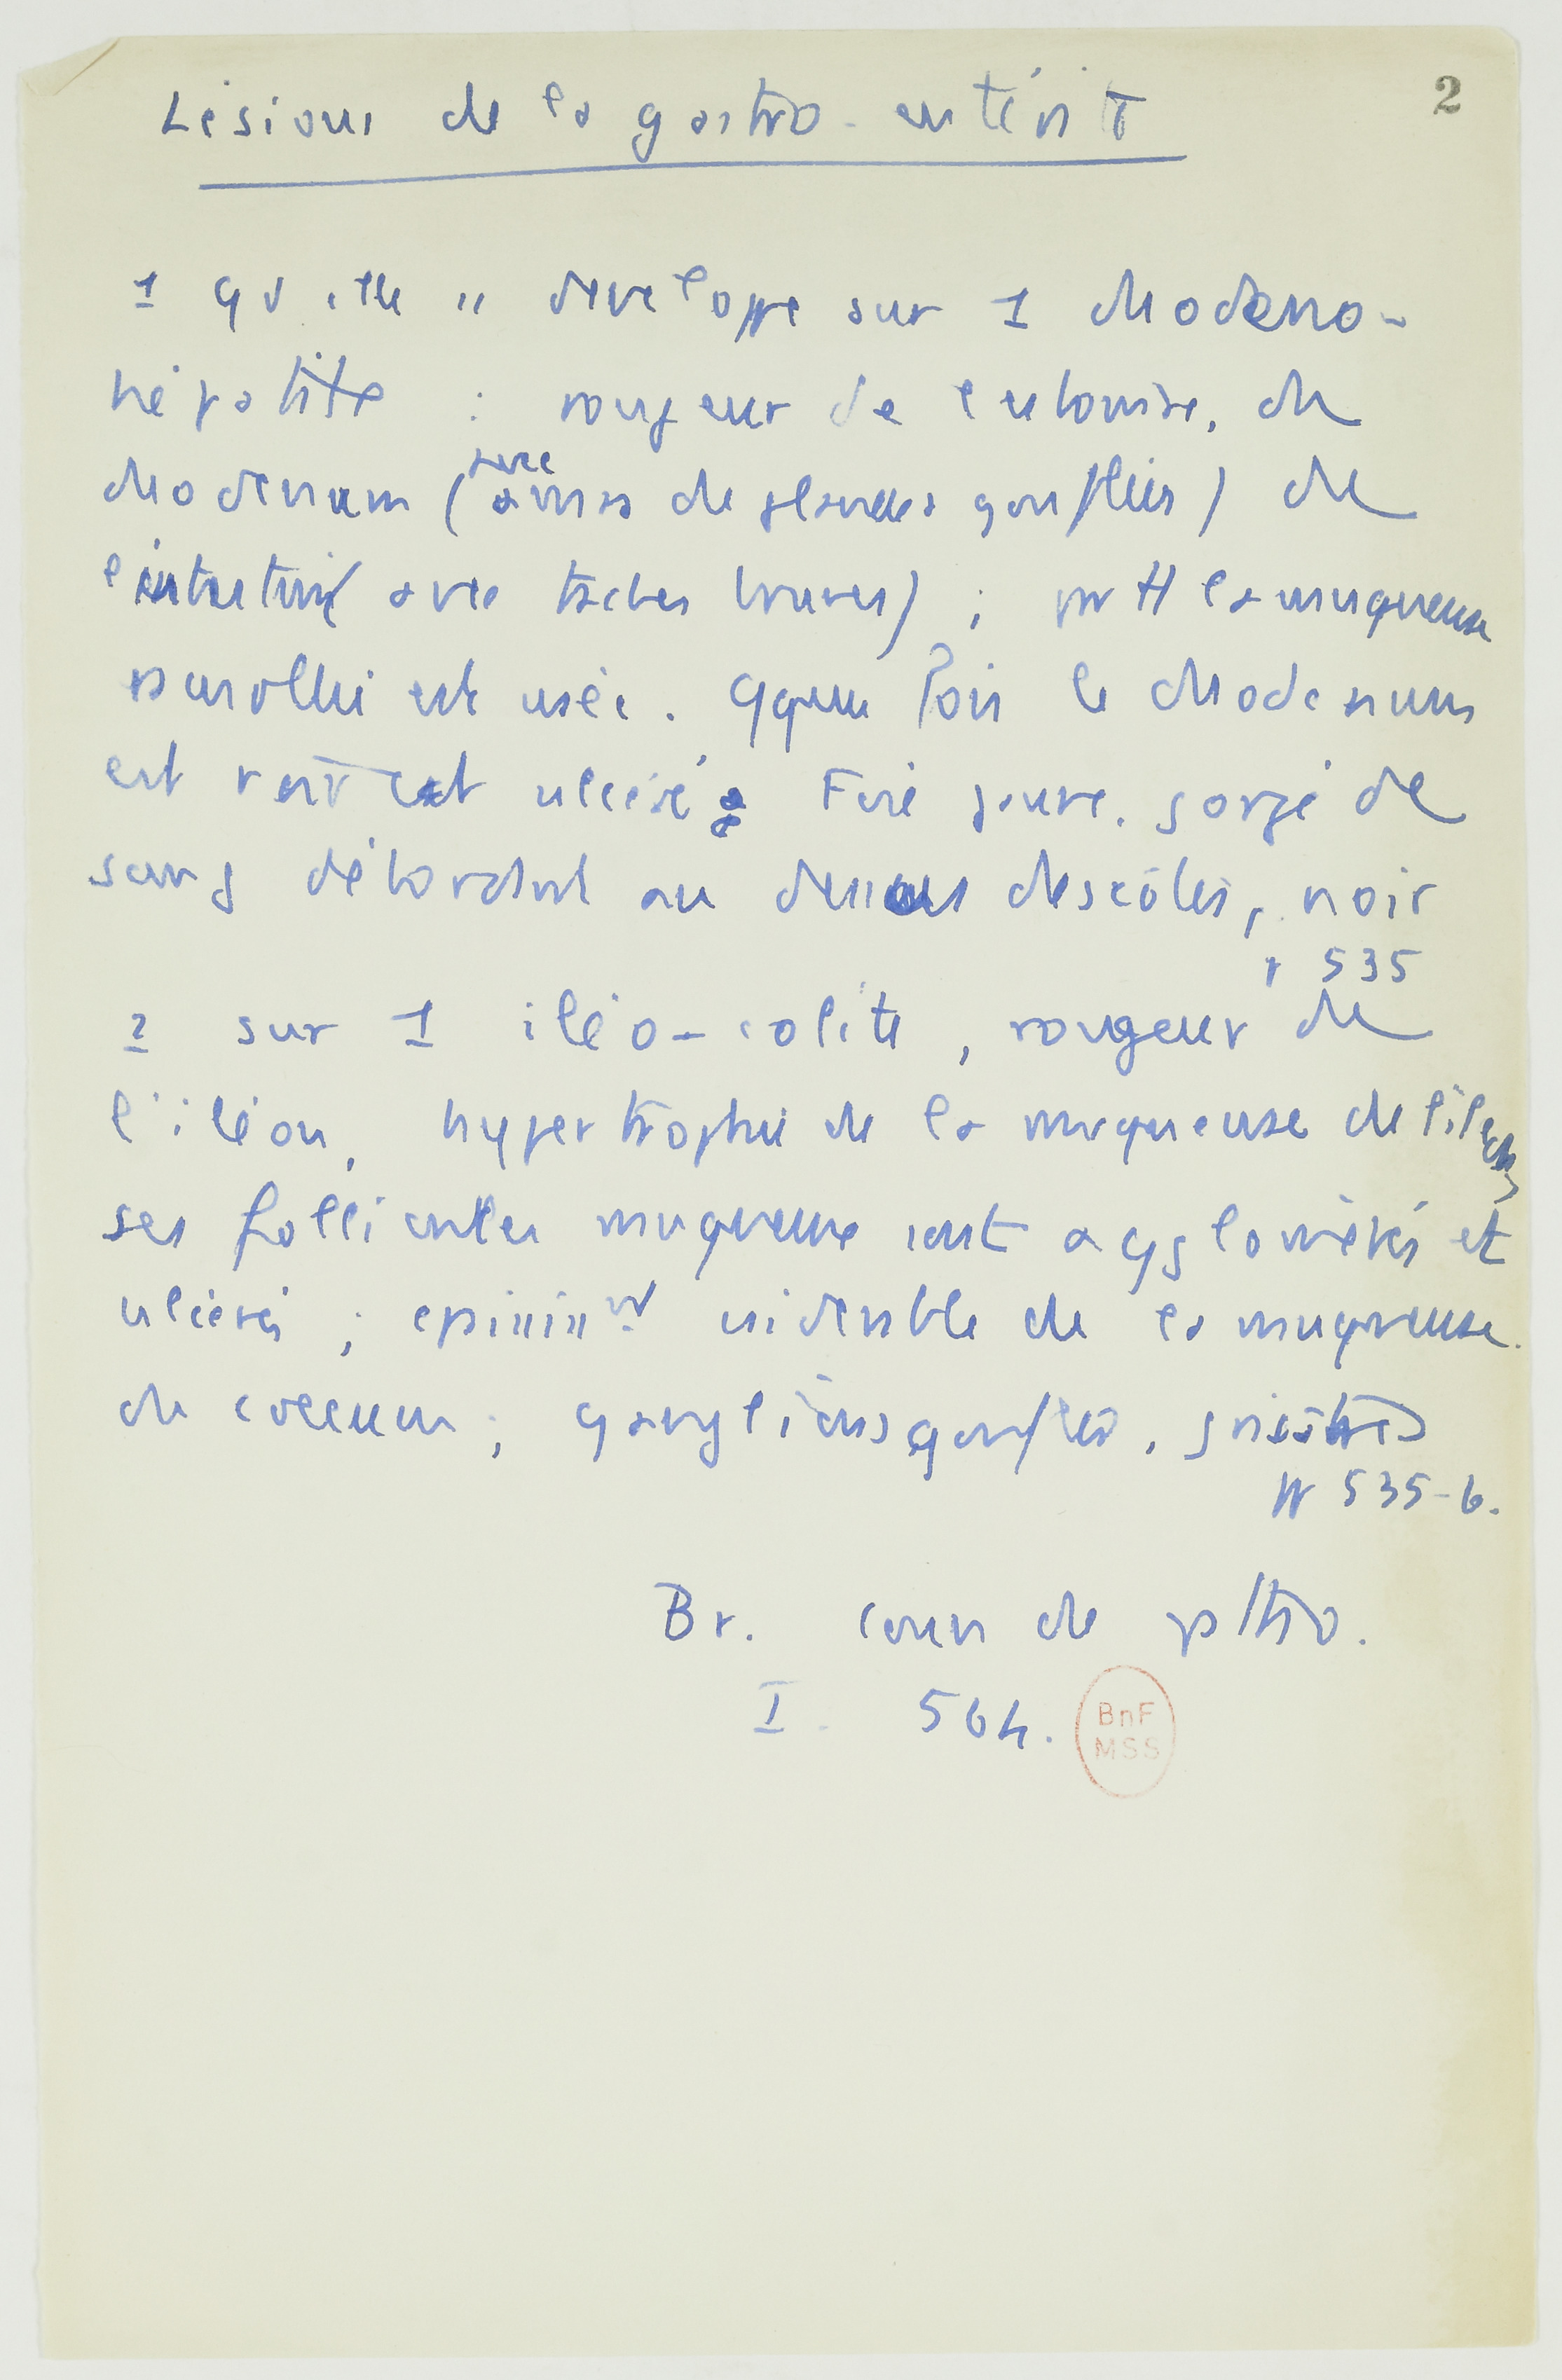 2
Lésions de la gastro-entérite
1 qd elle se développe sur 1 duodéno-
hépatite : rougeur de l'estomac, du
duodénum (avec amas de glandes gonflées) du
l'intestin avec taches brunes) ; la muqueuse
ramollie est usée. qque fois le duodenum
est rétréci et ulcéré. Foie jaune, gorgé de
sang débordant au dessous des côtes, noir
p 535
2 sur 1 iléo-colite, rougeur de
l'iléon, hypertrophie de la muqueuse de l'iléon,
ses follicules muqueux sont agglomérés et
ulcérés ; considérable de la muqueuse
du coecum ; ganglions gonflés,
pp 535-6.
Br. Cours de patho.
I. 564.
BnF
MSS